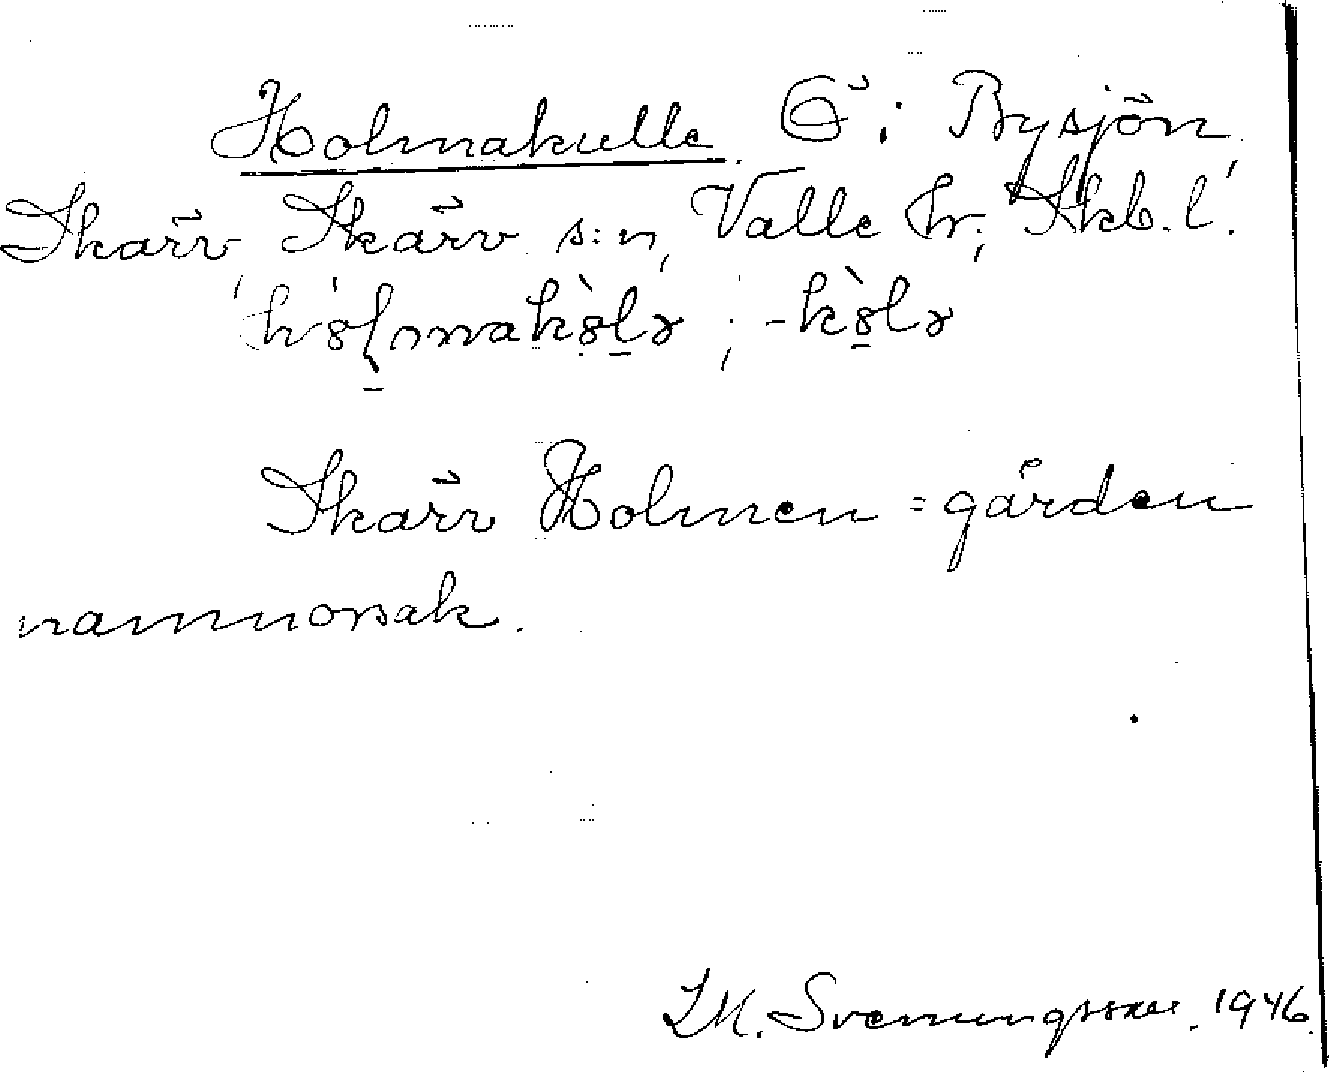 Holmakulle. Ö i Bysjön
Skärv, Skärv s:n, Valle hr, Skb. l.
; -kòlə
Skärv Holmen = gården
namnorsak.
LM. Svenungsson. 1946.